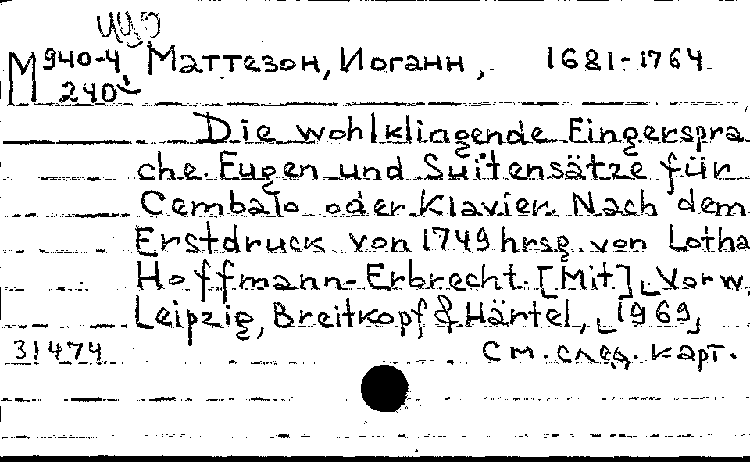 М 940-4 Маттезон, Иоганн, 1681-1764
240
Die wohlklingende Fingerspra
che. Fugen und Suitensätze für
Cembalo oder Klavier. Nach dem
Erstdruck von 1749 hrsg. von Lotha
Hoffmann-Erbrecht. [Mit] Vorw.
Leipzig, Breitkopf & Härtel, 1969
31474 См. след. карт.